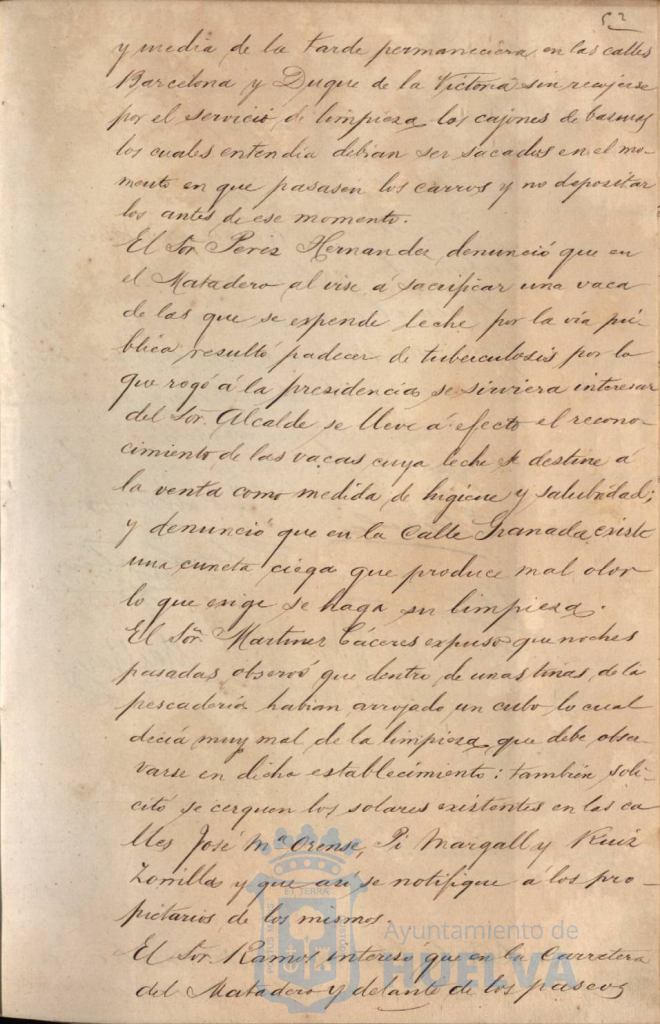 52
y media de la tarde permaneciera en las calles
Barcelona y Duque de la Victoria sin recojerse
por el servicio de limpieza los cajones de basuras
los cuales entendia debian ser sacados en el mo-
mento en que pasasen los carros y no depositar
los antes de ese momento.
El Sor. Perez Hernandez denunció que en
el Matadero al irse á sacrificar una vaca
de las que se expende leche por la via pú-
blica resultó padecer de tuberculosis por lo
que rogó á la presidencia se sirviera interesar
del Sor. Alcalde se lleve á efecto el recono-
cimiento de las vacas cuya leche se destine á
la venta como medida de higiene y salubridad;
y denunció que en la Calle Granada existe
una cuneta ciega que produce mal olor
lo que exige se haga su limpieza.
El Sor. Martinez Cáceres expuso que noches
pasadas observó que dentro de unas tinas de la
pescaderia habian arrojado un cubo lo cual
decia muy mal de la limpieza que debe obser-
varse en dicho establecimiento: tambien soli-
citó se cerquen los solares existentes en las ca
lles José Mª Orense, Pi Margall y Ruiz
Zorrilla y que asi se notifique á los pro-
pietarios de los mismos.
El Sor. Ramos interesó que en la Carretera
del Matadero y delante de los paseos
Ayuntamiento de
HUELVA